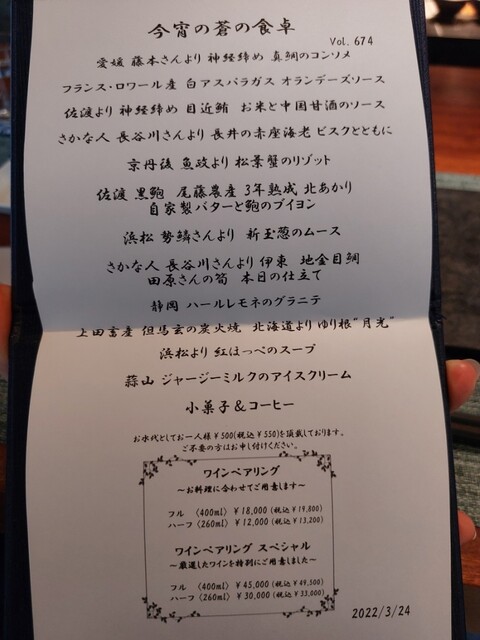 今宵の蒼の食卓
Vol. 674
愛媛 藤本さんより 神経締め 真鯛のコンソメ
フランス・ロワール産 白アスパラガス オランデーズソース
佐渡より 神経締め 目近鮪 お米と中国甘酒のソース
さかな人 長谷川さんより 長井の赤座海老 ビスクとともに
京丹後 魚政より 松葉蟹のリゾット
佐渡 黒鮑 尾藤農産 3年熟成 北あかり
自家製バターと鮑のブイヨン
浜松 勢鱗さんより 新玉葱のムース
さかな人 長谷川さんより 伊東 地金目鯛
田原さんの筍 本日の仕立て
静岡 ハールレモネのグラニテ
上田畜産 但馬玄の炭火焼 北海道より ゆり根"月光"
浜松より 紅ほっぺのスープ
蒜山 ジャージーミルクのアイスクリーム
小菓子&コーヒー
お水代としてお一人様¥500(税込¥550)を頂戴しております。
ご不要の方はお申し付けください。
ワインペアリング
~お料理に合わせてご用意します~
フル 〈400ml〉 ¥18,000 (税込¥19,800)
ハーフ 〈260ml〉 ¥12,000 (税込¥13,200)
ワインペアリング スペシャル
~厳選したワインを特別にご用意しました~
フル 〈400ml〉 ¥45,000 (税込¥49,500)
ハーフ 〈260ml〉 ¥30,000 (税込¥33,000)
2022/3/24